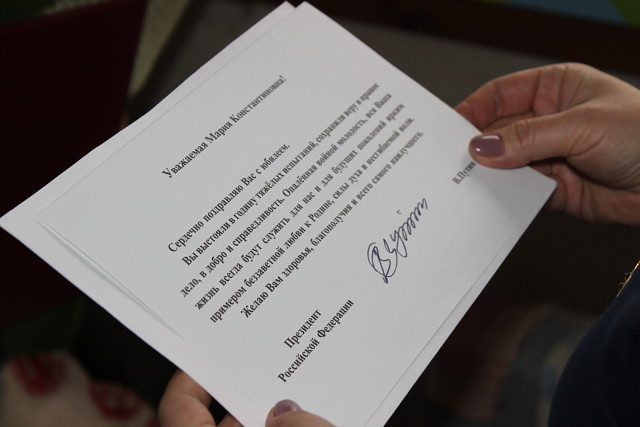 Уважаемая Мария Константиновна!
Сердечно поздравляю Вас с юбилеем.
Вы выстояли в годину тяжёлых испытаний, сохранили веру в правое
дело, в добро и справедливость. Опалённая войной молодость, вся Ваша
жизнь всегда будут служить для нас и для будущих поколений ярким
примером беззаветной любви к Родине, силы духа и несгибаемой воли.
Желаю Вам здоровья, благополучия и всего самого наилучшего.
Президент
Российской Федерации
В.Путин